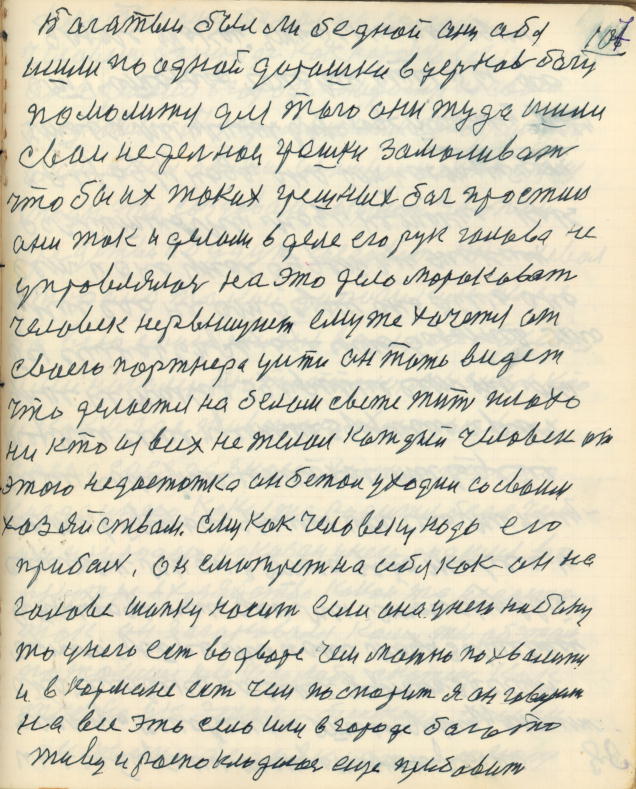 107
Багатыи был ли бедной они оба
шили по одной дорошки в церков богу
помолится для того они туда шили
свои неделнои грешки замоливат
что бы их таких грешных бог простил
они так и делали в деле его рук голова не
управлялас на это дело мороковат
человек нервнищует ему же хочется от
своего портнера уити он тоть видет
что делается на белом свете жит плохо
ни кто из всех не желал каждый человек от
этого недостатка он бежал уходил со своим
хозяйствам. ему как человеку надо его
прибыл, он смотрет на себя как он на
голове шапку носит если она у него на боку
то у него ест во дворе чем можно похвалится
и в кормане ест чем поспорит я он говорит
на все это село или в городе богато
живу и роспокладаюс еще прибовит